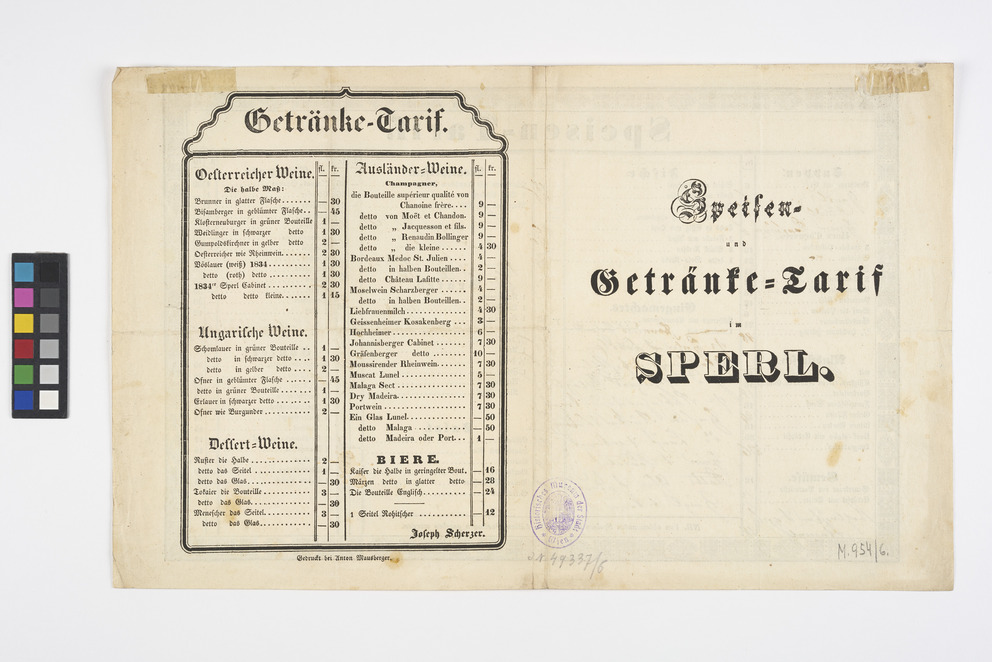 Getränke-Tarif.
Oesterreicher Weine. fl. kr.
Die halbe Maß:
Brunner in glatter Flasche....... — 30
Bisamberger in geblümter Flasche.. — 45
Klosterneuburger in grüner Bouteille 1 —
Weidlinger in schwarzer detto 1 30
Gumpoldskirchner in gelber detto 2 —
Oesterreicher wie Rheinwein...... 2 30
Vöslauer (weiß) 1834.......... 1 30
detto (roth) detto .......... 1 30
1834er Sperl Cabinet .......... 2 30
detto detto kleine....... 1 15
Ungarische Weine.
Schomlauer in grüner Bouteille .. 1 —
detto in schwarzer detto .... 1 30
detto in gelber detto .... 2 —
Ofner in geblümter Flasche ...... — 45
detto in grüner Bouteille........ 1 —
Erlauer in schwarzer detto ........ 1 30
Ofner wie Burgunder .......... 2 —
Dessert-Weine.
Rußter die Halbe .............. 2 —
detto das Seitel .............. 1 —
detto das Glas................ — 30
Tokaier die Bouteille ............ 3 —
detto das Glas................ — 30
Menescher das Seitel............ 3 —
detto das Glas............ — 30
Ausländer-Weine. fl. kr.
Champagner,
die Bouteille supérieur qualité von
Chanoine frère.... 9 —
detto von Moët et Chandon. 9 —
detto „ Jacquesson et fils. 9 —
detto „ Renaudin Bollinger 9 —
detto „ die kleine ...... 4 30
Bordeaux Medoc St. Julien .... 4 —
detto in halben Bouteillen.. 2 —
detto Château Lafitte ...... 9 —
Moselwein Scharzberger ...... 4 —
detto in halben Bouteillen.. 2 —
Liebfrauenmilch.............. 4 30
Geissenheimer Kosakenberg ... 3 —
Hochheimer.................. 6 —
Johannisberger Cabinet ........ 7 30
Gräfenberger detto ........ 10 —
Moussirender Rheinwein........ 7 30
Muscat Lunel................ 5 —
Malaga Sect ................ 7 30
Dry Madeira................ 7 30
Portwein .................. 7 30
Ein Glas Lunel.............. — 50
detto Malaga ............ — 50
detto Madeira oder Port... 1 —
BIERE.
Kaiser die Halbe in geringelter Bout. — 16
Märzen detto in glatter detto — 28
Die Bouteille Englisch.......... — 24
1 Seitel Rohitscher ............ — 12
Joseph Scherzer.
Gedruckt bei Anton Mausberger.
Speisen-
und
Getränke-Tarif
im
SPERL.
Historisches Museum der Stadt Wien
J.N. 49337/6
M. 954/6.